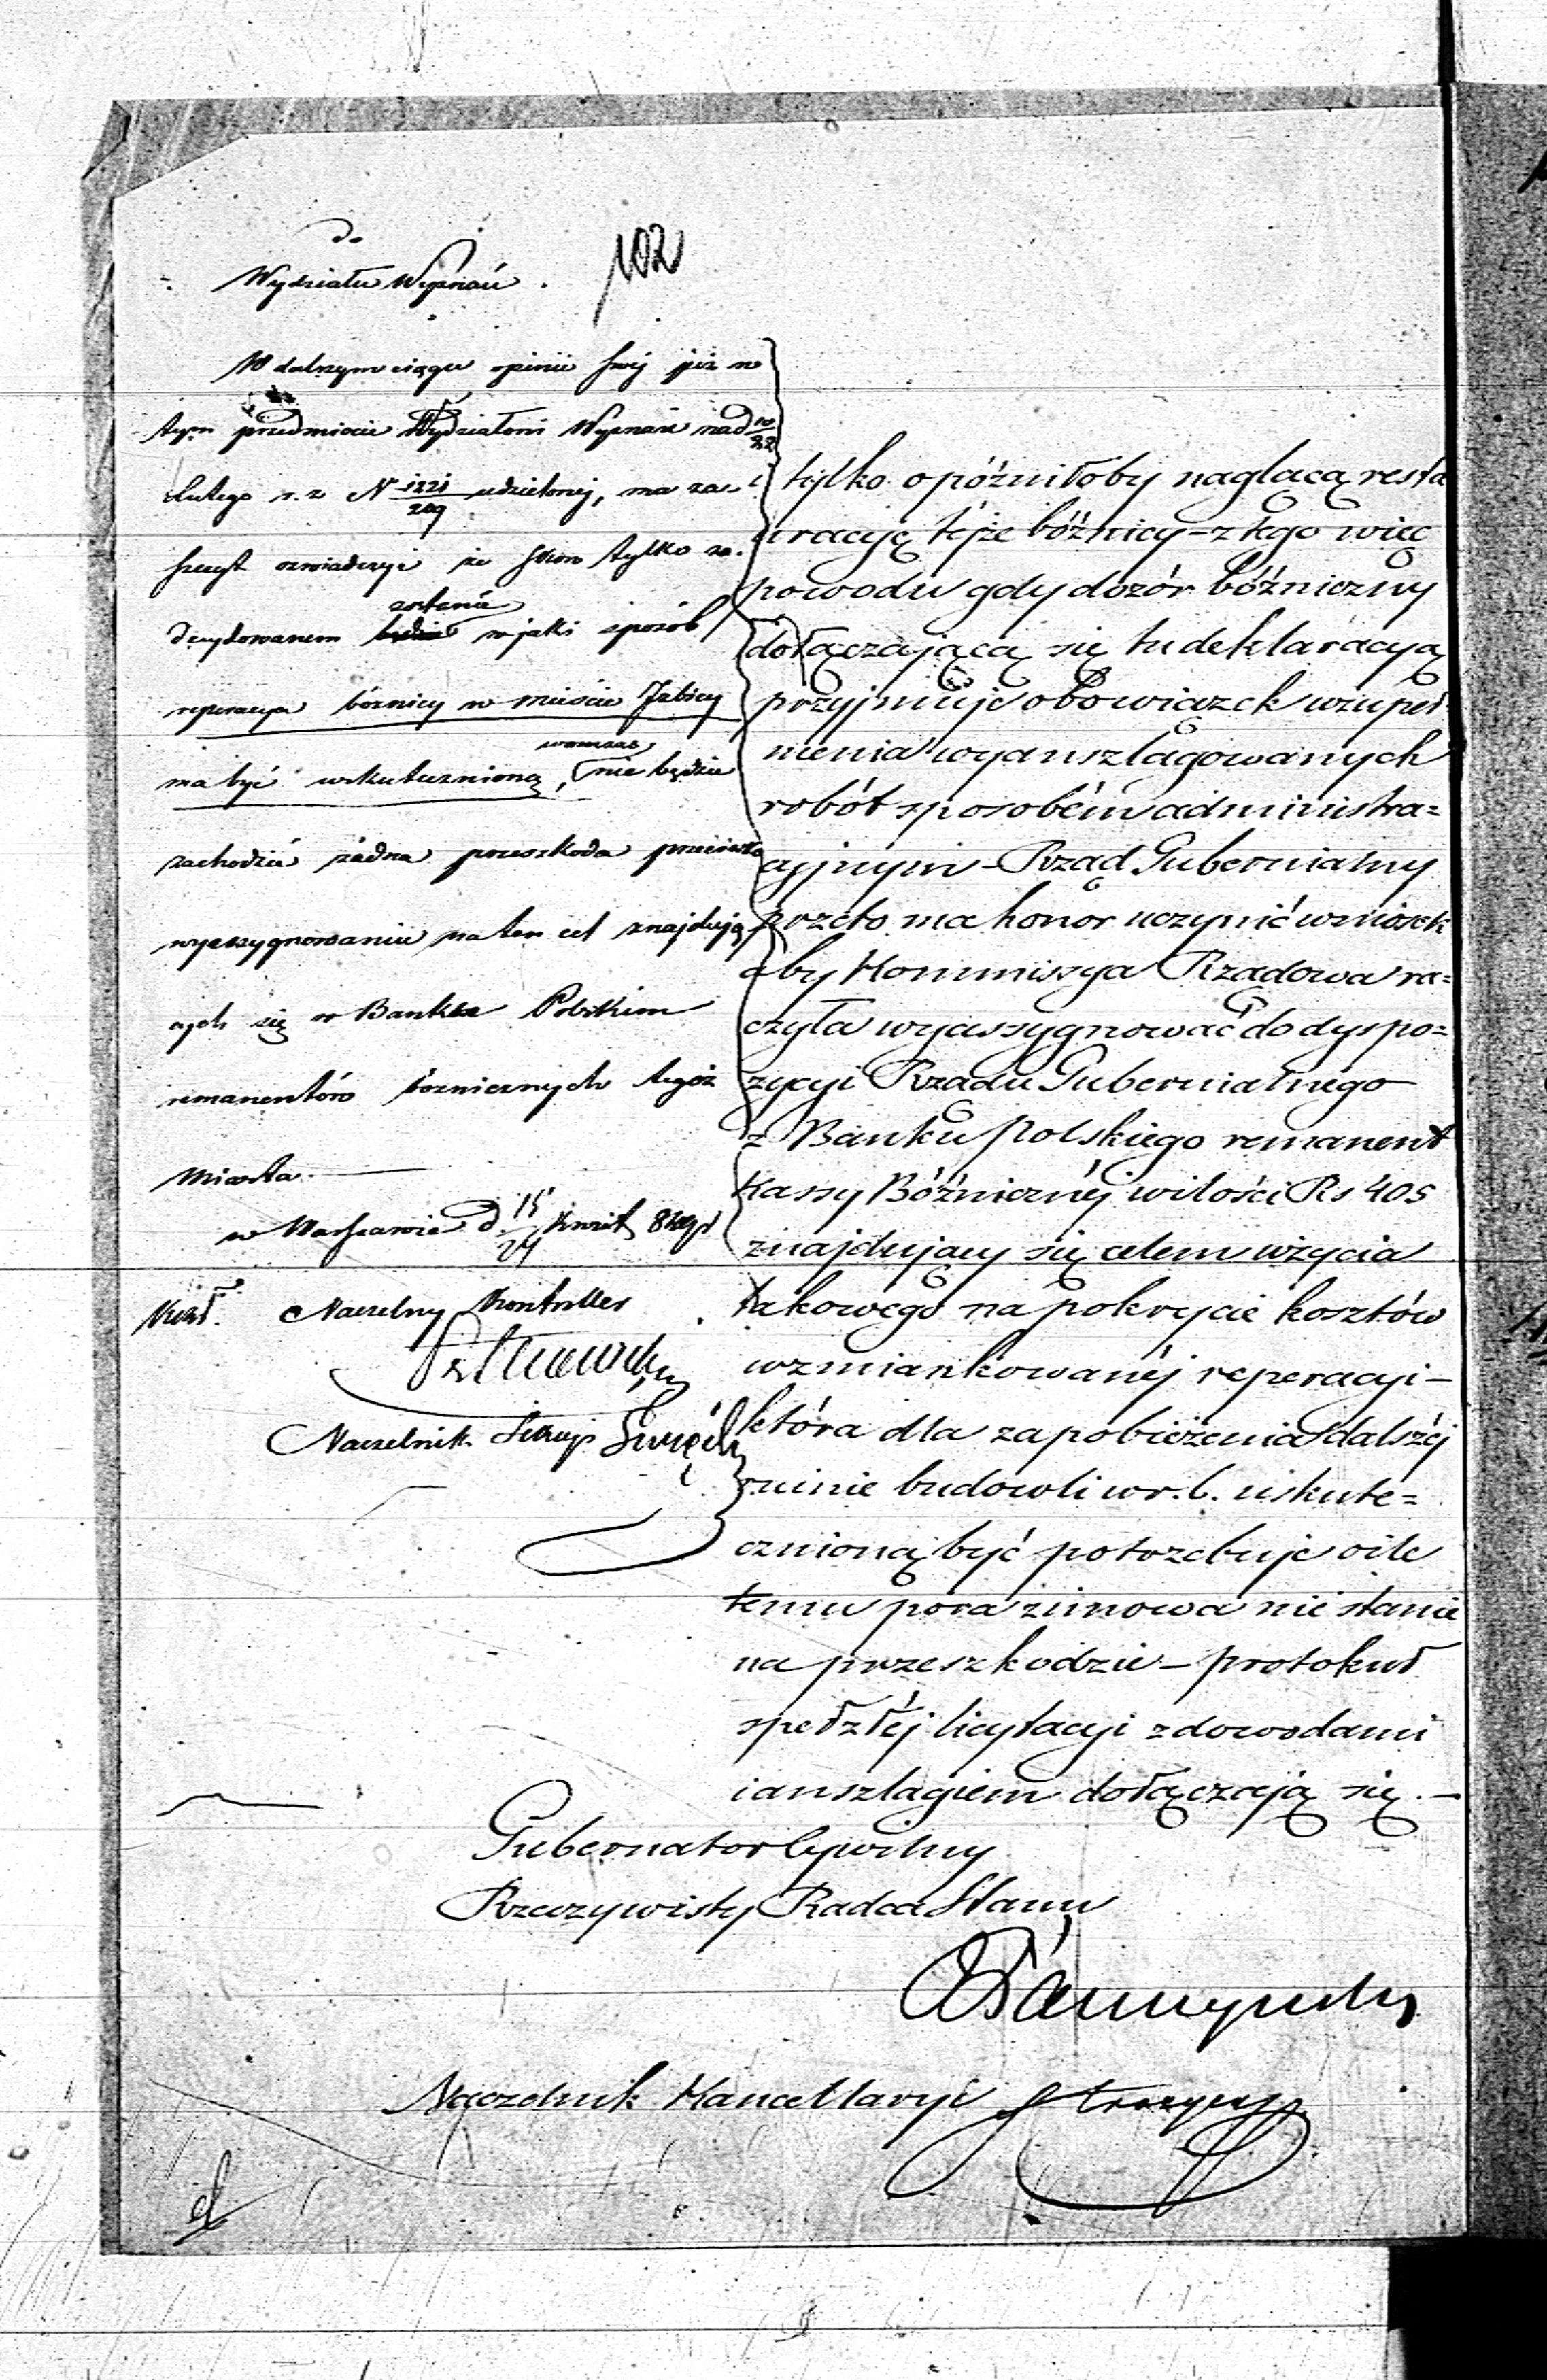 102
do
Wydziału Wyznań.
W dalszym ciągu opinii swej już w
tym przedmiocie Wydziałowi Wyznań nad 10/22
Lutego r. z. N 1221/209 udzielonej, ma za-
szczyt oświadczyć że skoro tylko za-
decydowanem zostanie w jaki sposób
reperacya bóżnicy w mieście Izbicy
ma być uskutecznioną, wówczas nie będzie
zachodzić żadna przeszkoda przeciwko
wyassygnowaniu na ten cel znajdują
cych się w Banku Polskim
remanentów bóżnicznych tegoż
Miasta.
w Warszawie d.
Naczelny Kontroller
Naczelnik Sekcyi
tylko opóźniłoby naglącą resta
uracyę téjże bóżnicy - z tego więc
powodu gdy dozór bóźniczny
dołączającą się tu deklaracyą
przyjmuje obowiązek uzupeł-
nienia wyanszlagowanych
robót sposobém administra=
cyjnym - Rząd Gubernialny
przeto ma honor uczynić wniosek
aby Kommissya Rządowa ra=
czyła wyassygnować do dyspo=
zycyi Rządu Gubernialnego
z Banku Polskiego remanent
Kassy Bóźnicznéj w ilości Rs 405
znajdujący się celem użycia
takowego na pokrycie kosztów
wzmiankowanéj reperacyi -
która dla zapobieżenia dalszéj
ruinie budowli w r. b. uskute=
cznioną być potrzebuje o ile
temu pora zimowa nie stanie
na przeszkodzie - protokuł
spełzłéj licytacyi z dowodami
i anszlagiem dołączają się. -
Gubernator Cywilny
Rzeczywisty Radca Stanu
Naczelnik Kancellaryi